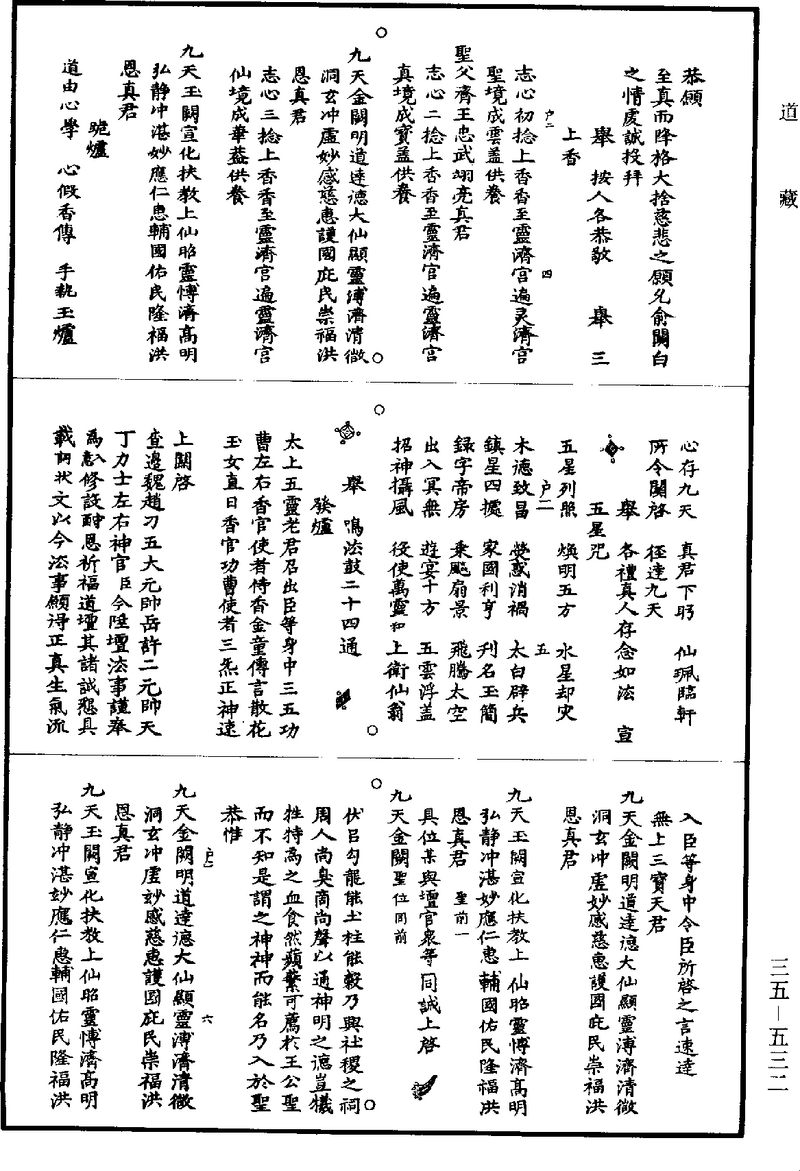 道藏
三五—五三二
恭願
至真而降格大捨慈悲之願允俞關白
之情虔誠投拜
舉 按人各恭敬 舉 三
上香
志心初捻上香香至靈濟宫遍灵濟宫
聖境成雲盖供養
聖父齊王忠武翊亮真君
志心二捻上香香至靈濟宫遍靈濟宫
真境成寶盖供養
九天金闕明道達德大仙顯靈溥濟清微
洞玄冲虛妙感慈惠護國庇民崇福洪
恩真君
志心三捻上香香至靈濟宫遍靈濟宫
仙境成華葢供養
九天玉闕宣化扶教上仙昭靈愽濟髙明
弘静冲湛妙應仁惠輔國佑民隆福洪
恩真君
跪爐
道由心學 心假香傳 手執玉爐
心存九天 真君下盻 仙珮臨軒
所令關啓 徑達九天
舉 各禮真人存念如法 宣
五星咒
五星列照 煥明五方 水星却灾
木德致昌 熒惑消禍 太白辟兵
鎮星四據 家國利亨 刋名玉簡
録字帝房 乘飈扇景 飛騰太空
出入冥無 遊宴十方 五雲浮蓋
招神攝風 役使萬靈 和上衛仙翁
舉 鳴法鼓二十四通
發爐
太上五靈老君召出臣等身中三五功
曹左右香官使者侍香金童傳言散花
玉女直日香官功曹使者三炁正神速
上關啓
查邊魏趙刁五大元帥岳許二元帥天
丁力士左右神官臣今陞壇法事謹奉
為 修設酧恩祈福道壇其諸誠懇具
載詞狀文以今法事願得正真生氣流
入臣等身中令臣所啓之言速達
無上三寶天君
九天金闕明道達德大仙顯靈溥濟清微
洞玄冲虛妙感慈惠護國庇民崇福洪
恩真君
九天玉闕宣化扶教上仙昭靈愽濟髙明
弘静冲湛妙應仁惠輔國佑民隆福洪
恩真君 聖前一
具位某與壇官衆等同誠上啓
九天金闕聖位同前
伏㠯勾龍能土柱能穀乃興社稷之祠
周人尚臭商尚聲以通神明之德豈犧
牲特為之血食然蘋蘩可薦於王公聖
而不知是謂之神神而能名乃入於聖
恭惟
九天金闕明道達德大仙顯靈溥濟清微
洞玄冲虛妙感慈惠護國庇民崇福洪
恩真君
九天玉闕宣化扶教上仙昭靈愽濟髙明
弘静冲湛妙應仁惠輔國佑民隆福洪